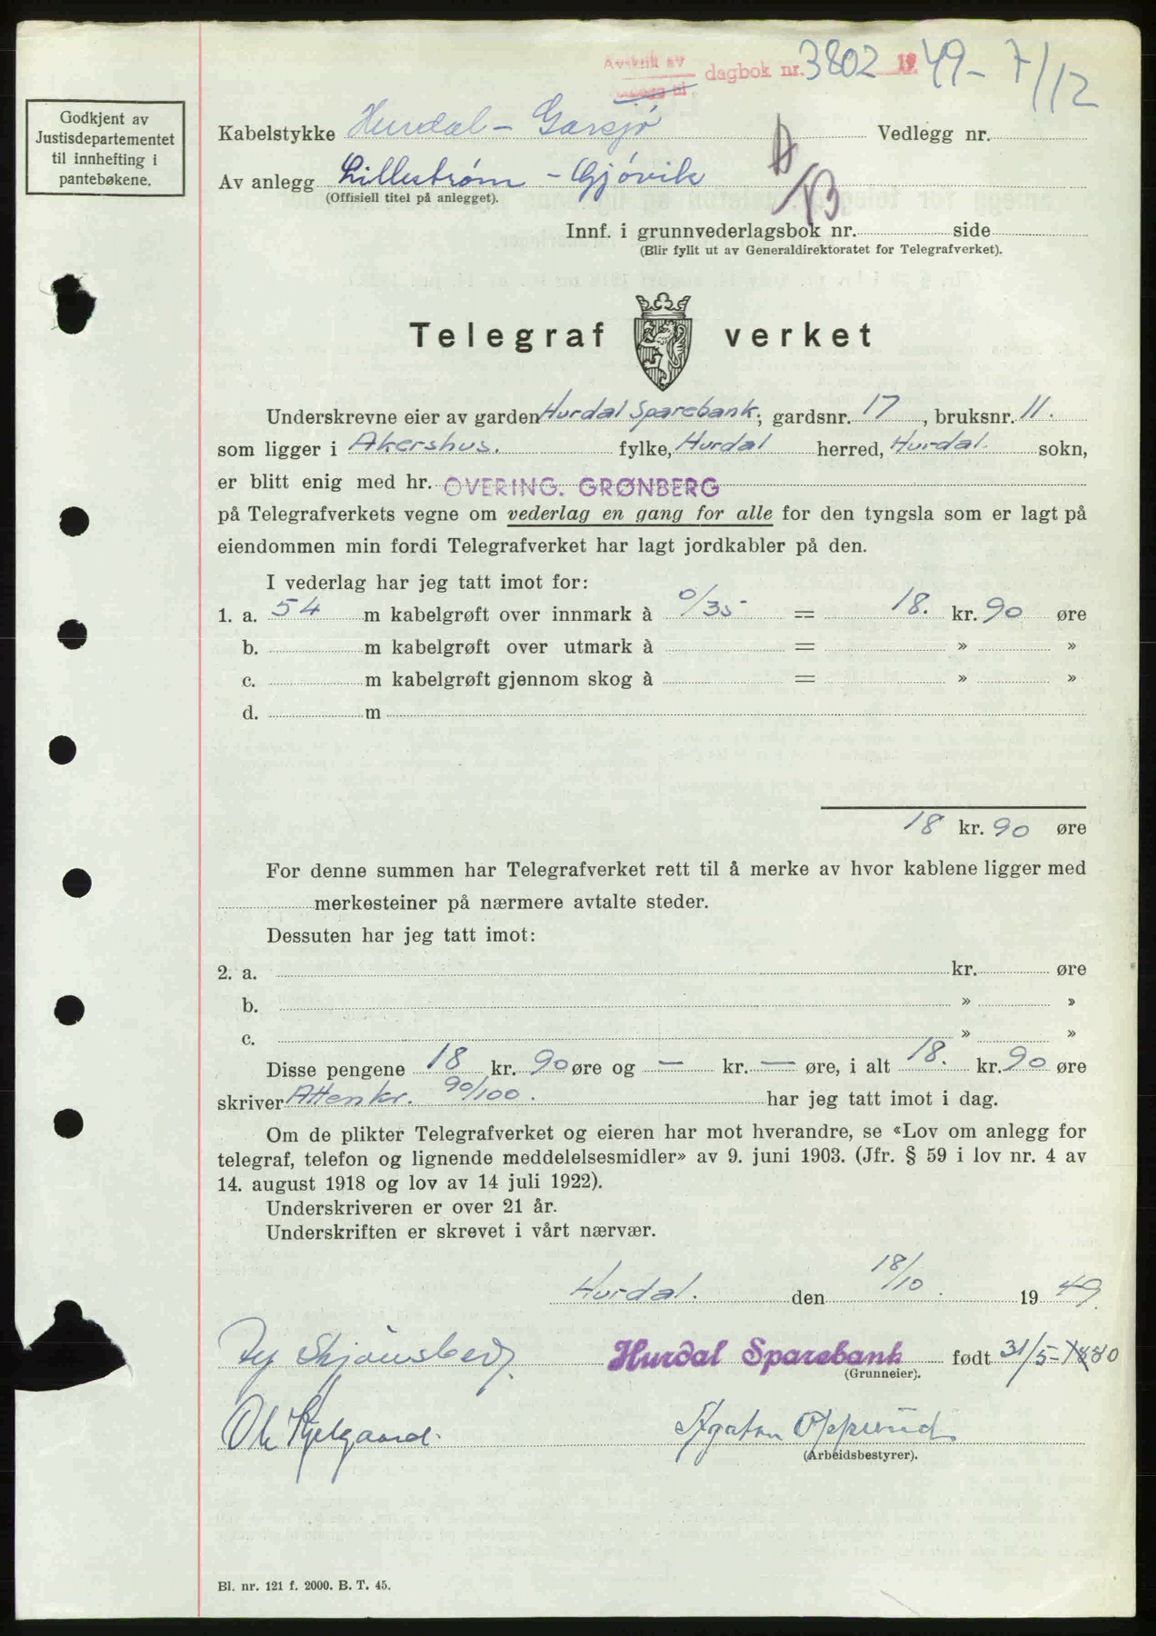 Avskrift av
dagbok nr. 3802 1949 - 7/12
Godkjent av
Justisdepartementet
til innhefting i
pantebøkene.
Kabelstykke Hurdal - Garsjø Vedlegg nr.
Av anlegg Lillestrøm - Gjøvik
(Offisiell titel på anlegget).
B
Innf. i grunnvederlagsbok nr. side
(Blir fyllt ut av Generaldirektoratet for Telegrafverket).
Telegraf verket
Underskrevne eier av garden Hurdal Sparebank; gardsnr. 17, bruksnr. 11.
som ligger i Akershus. fylke, Hurdal herred, Hurdal. sokn,
er blitt enig med hr. OVERING. GRØNBERG
på Telegrafverkets vegne om vederlag en gang for alle for den tyngsla som er lagt på
eiendommen min fordi Telegrafverket har lagt jordkabler på den.
I vederlag har jeg tatt imot for:
1. a. 54 m kabelgrøft over innmark à 0/35 = 18. kr. 90 øre
b. m kabelgrøft over utmark à = » »
c. m kabelgrøft gjennom skog à = » »
d. m
18 kr. 90 øre
For denne summen har Telegrafverket rett til å merke av hvor kablene ligger med
merkesteiner på nærmere avtalte steder.
Dessuten har jeg tatt imot:
2. a. kr. øre
b. » »
c. » »
Disse pengene 18 kr. 90 øre og — kr. — øre, i alt 18. kr. 90 øre
skriver Atten kr. 90/100. har jeg tatt imot i dag.
Om de plikter Telegrafverket og eieren har mot hverandre, se «Lov om anlegg for
telegraf, telefon og lignende meddelelsesmidler» av 9. juni 1903. (Jfr. § 59 i lov nr. 4 av
14. august 1918 og lov av 14 juli 1922).
Underskriveren er over 21 år.
Underskriften er skrevet i vårt nærvær.
Hurdal. den 18/10. 19 49.
Skjønsberg. Hurdal Sparebank født 31/5-1880
(Grunneier).
Ole Kjelgaard. Agaton Oppund
(Arbeidsbestyrer).
Bl. nr. 121 f. 2000. B. T. 45.